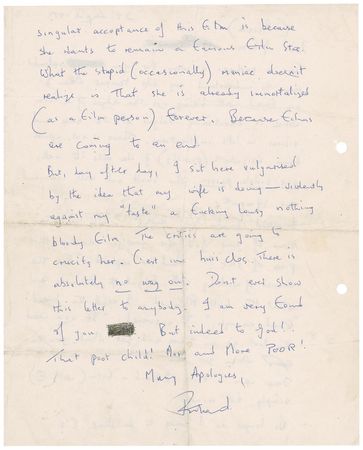 singular acceptance of this Film is because
she wants to remain a Famous Film Star.
What the stupid (occasionally) maniac doesn't
realize is that she is already immortalised
(as a film person) forever. Because Films
are coming to an end.
But, day after day, I sit here vulgarised
by the idea that my wife is doing — violently
against my "taste" a fucking lousy nothing
bloody film. The critics are going to
crucify her. C'est un huis clos. There is
absolutely no way out. Don't ever show
this letter to anybody. I am very fond
of you But indeed to God!
That poor child! And More POOR!
Many Apologies,
Richard.